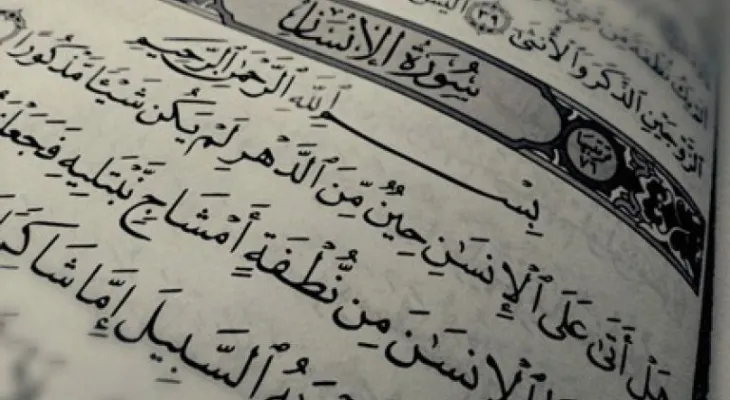 ٱلزَّوۡجَيۡنِ ٱلذَّكَرَ وَٱلۡأُنثَىٰٓ ٣٩ أَلَيۡسَ
سُورَةُ ٱلۡإِنسَٰنِ
بِسۡمِ ٱللَّهِ ٱلرَّحۡمَٰنِ ٱلرَّحِيمِ
هَلۡ أَتَىٰ عَلَى ٱلۡإِنسَٰنِ حِينٞ مِّنَ ٱلدَّهۡرِ لَمۡ يَكُن شَيۡـٔٗا مَّذۡكُورًا
ٱلۡإِنسَٰنَ مِن نُّطۡفَةٍ أَمۡشَاجٖ نَّبۡتَلِيهِ فَجَعَلۡنَٰهُ
ٱلسَّبِيلَ إِمَّا شَاكِرٗا